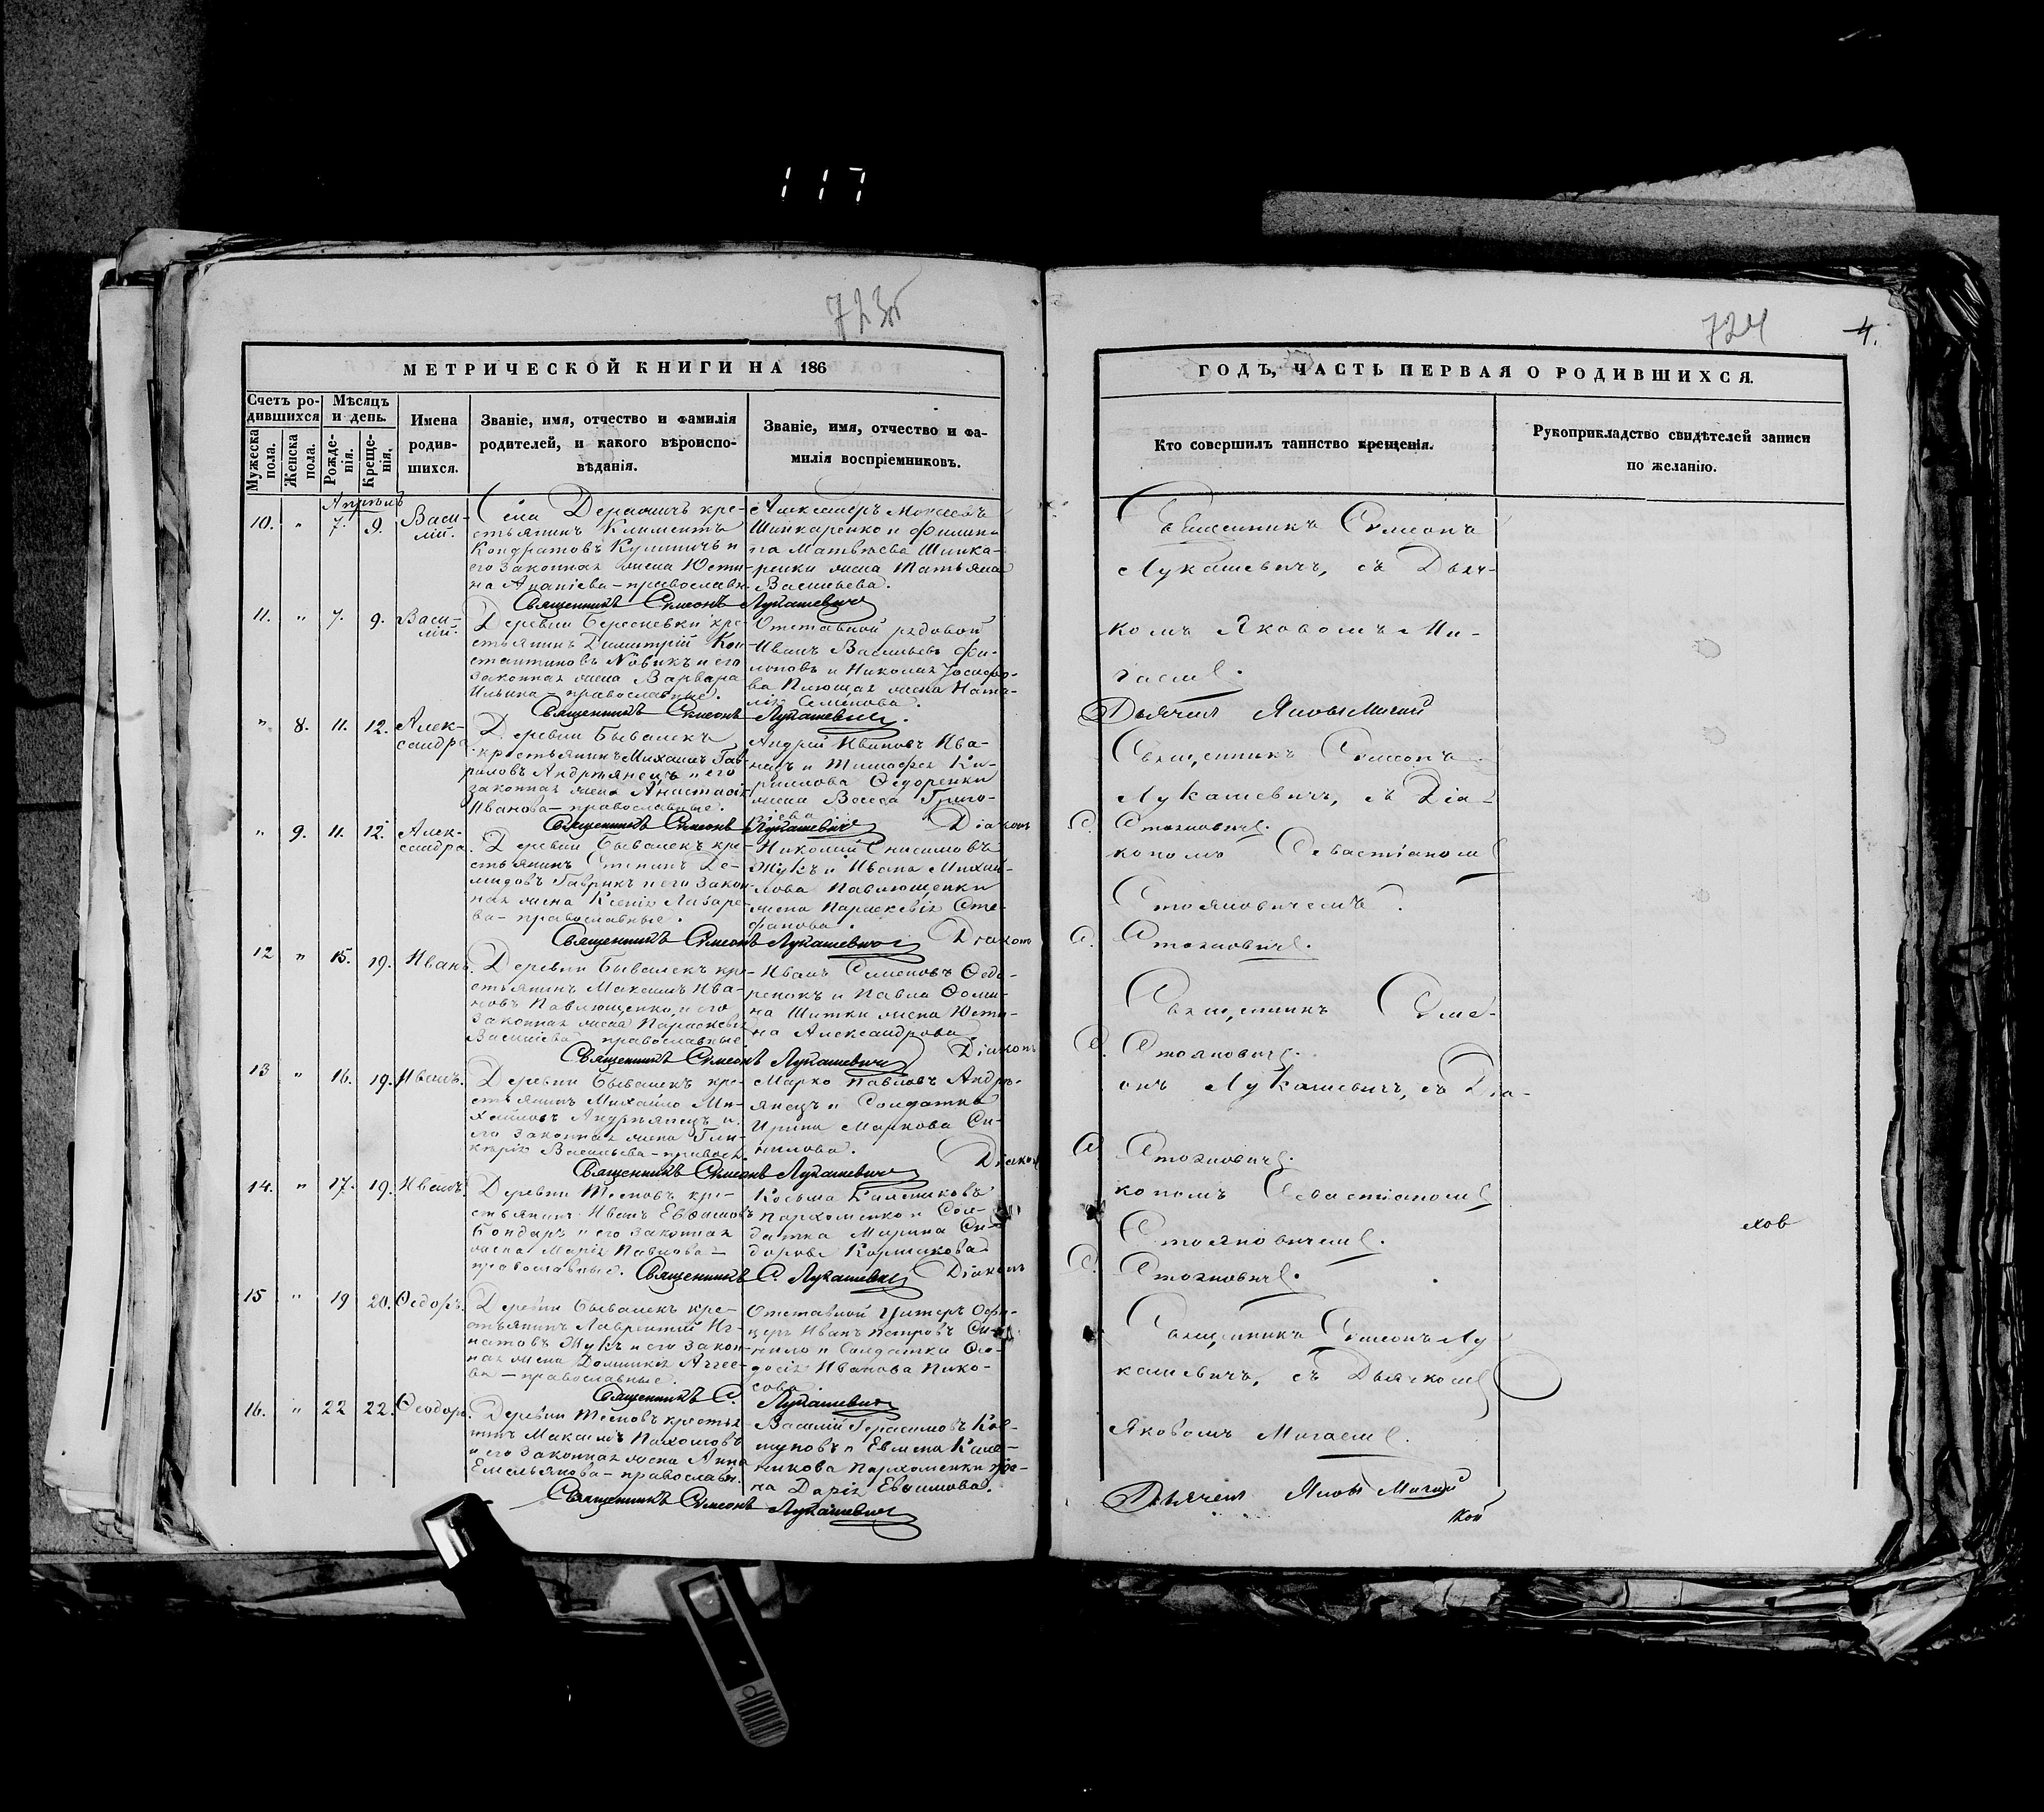 117
723об
МЕТРИЧЕСКОЙ КНИГИ НА 186
Счетъ ро-
дившихся
Мѣсяцъ
и день.
Мужеска
пола.
Женска
пола.
Рожде-
нія.
Креще-
нія.
Имена
родив-
шихся.
Званіе, имя, отчество и фамилія
родителей, и какого вѣроиспо-
вѣданія.
Званіе, имя, отчество и фа-
милія воспріемниковъ.
Апрѣль
10. " 7. 9. Васи-
лій.
Села Деражичъ кре-
стьянинъ Климентъ
Кондратовъ Кулиничъ и
его законная жена Юсти-
на Ананіева - православн.
Александръ Моисеевъ
Шинкаренко и Филип-
па Матвѣева Шинка-
ренки жена Татьяна
Васильева.
Священникъ Симеонъ Лукашевичъ
11. " 7. 9. Васи-
лій.
Деревни Береснevки кре-
стьянинъ Димитрій Кон
стантиновъ Новикъ и его
законная жена Варвара
Ильина - православные.
Отставной рядовой
Иванъ Васильевъ Фи-
лоновъ и Николая Іосифо-
ва Плюща жена Ната-
лія Семенова.
Священникъ Симеонъ Лукашевичъ.
" 8. 11. 12. Алек-
сандра
Деревни Бывалекъ
крестьянинъ Михаилъ Гав-
риловъ Андрѣянецъ и его
законная жена Анастасія
Иванова - православные.
Андрей Ивановъ Ива-
нецъ и Тимофея Ки-
рилова Ѳедоренки
жена Васса Григо-
рьева
Священникъ Симеонъ Лукашевичъ Діаконъ
" 9. 11. 12. Алек-
сандра.
Деревни Бывалекъ кре-
стьянинъ Степанъ Де-
мидовъ Гаврикъ и его закон-
ная жена Ксенія Лазаре-
ва - православные.
Николай Онисимовъ
Жукъ и Ивана Михай-
лова Павлющенки
жена Параскевія Сте-
фанова.
Священникъ Симеонъ Лукашевичъ Діаконъ
12 " 15. 19. Иванъ.
Деревни Бывалекъ кре-
стьянинъ Максимъ Ива-
новъ Павлющенко, и его
законная жена Параскевія
Васильева православные
Иванъ Семеновъ Ѳедо-
ренокъ и Павла Ѳоми-
на Шитки жена Юсти-
на Александрова
Священникъ Симеонъ Лукашевичъ Діаконъ
13 " 16. 19. Иванъ.
Деревни Бывалекъ кре-
стьянинъ Михайло Ми-
хайловъ Андрѣянецъ и
его законная жена Гли-
керія Васильева - правосл.
Марко Павловъ Андрѣ-
янецъ и Солдатка
Ирина Маркова Си-
нилова.
Священникъ Симеонъ Лукашевичъ Діаконъ
14. " 17. 19. Иванъ.
Деревни Тесновъ кре-
стьянинъ Иванъ Евѳимовъ
Бондарь и его законная
жена Марія Павлова -
православные.
Косьма Калениковъ
Пархоменко и Сол-
датка Марина Си-
дорова Кормакова
Священникъ С. Лукашевичъ Діаконъ
15 " 19 20. Ѳедоръ.
Деревни Бывалекъ кре-
стьянинъ Лаврентій Иг-
натовъ Жукъ и его закон-
ная жена Домникія Аггее-
ва - православные.
Отставной Унтеръ Офи-
церъ Иванъ Петровъ Си-
нило и Солдатки Ѳео-
досія Иванова Нико-
сова
Священникъ С. Лукашевичъ
16. " 22 22. Ѳеодоръ.
Деревни Тесновъ крестья-
нинъ Максимъ Пахомовъ
и его законная жена Анна
Емельянова - православн.
Василій Герасимовъ Ков-
туновъ и Евмена Кале-
никова Пархоменки же-
на Дарія Евѳимова.
Священникъ Симеонъ Лукашевичъ
724
4.
ГОДЪ, ЧАСТЬ ПЕРВАЯ О РОДИВШИХСЯ.
Кто совершилъ таинство крещенія.
Рукоприкладство свидѣтелей записи
по желанію.
Священникъ Симеонъ
Лукашевичъ, съ Дьяч-
комъ Яковомъ Ми-
гаемъ.
Дьячекъ Яковъ Мигай
Священникъ Симеонъ
Лукашевичъ, съ Діа-
С. Стояновичъ.
кономъ Севастіаномъ
Стояновичемъ.
С. Стояновичъ.
Священникъ Симе-
С. Стояновичъ.
онъ Лукашевичъ, съ Діа-
С. Стояновичъ.
кономъ Севастіаномъ
Стояновичемъ.
С. Стояновичъ.
Священникъ Симеонъ Лу
кашевичъ, съ Дьячкомъ
Яковомъ Мигаемъ.
Дьячекъ Яковъ Мигай